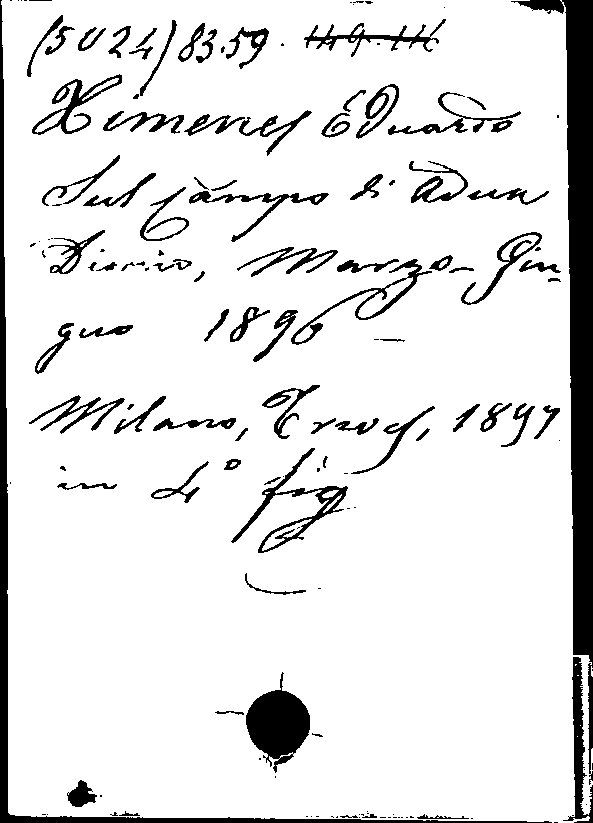 (5024) 83.59.
Ximenes Eduardo
Sul Campo di Adua
Diario, Marzo-Giu-
gno 1896 —
Milano, Treves, 1897
in 4° fig